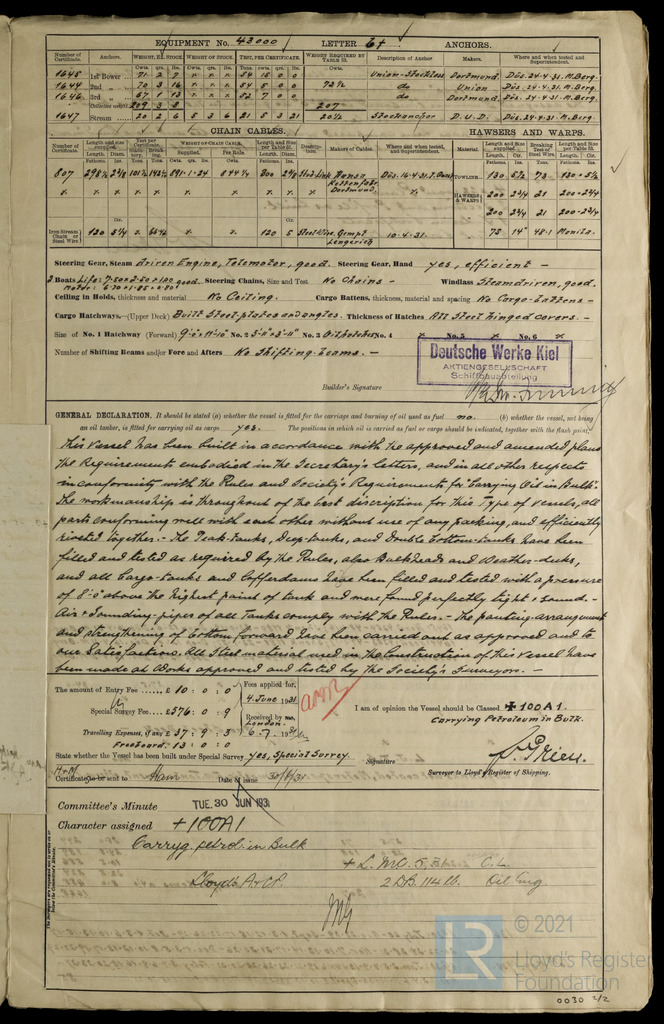 EQUIPMENT No. 43000 LETTER 6† ANCHORS.
Number of Certificate. Anchors. WEIGHT, EX. STOCK. WEIGHT OF STOCK. TEST, PER CERTIFICATE. WEIGHT REQUIRED BY TABLE 31. Description of Anchor Makers. Where and when tested and Superintendent.
Cwts. qrs. lbs. Cwts. qrs. lbs. Tons. cwts. qrs. lbs. Cwts.
1645 1st Bower 71 2 7 x x x 54 15 0 0 Union-Stockless Dortmund Düs. 24.4.31. M.Berg.
1644 2nd „ 70 3 16 x x x 54 5 0 0 72½ do Union Düs. 24.4.31. M.Berg.
1646 3rd „ 67 1 13 x x x 52 7 0 0 do Dortmund Düs. 24.4.31. M.Berg.
Collective weight 209 3 8 207
1647 Stream 20 2 6 5 3 6 21 5 3 21 20½ Stockanchor D.U.D. Düs. 24.4.31. M.Berg.
CHAIN CABLES. HAWSERS AND WARPS.
Number of Certificate. Length and size supplied. Test per Certificate. WEIGHT OF CHAIN CABLE. Length and Size per Table 31. Description. Makers of Cables. Where and when tested, and Superintendent. Material. Length and Size supplied. Breaking Test of Steel Wire. Length and Size per Table 31.
807 Stud Link Düs. 16.4.31. TOWLINE 130 5½ 73 130 + 5½
x x x x x x x Dortmund x HAWSERS & WARPS 200 2¾ 21 200 - 2¾
200 2¾ 21 200 - 2¾
Iron Stream Chain or Steel Wire 120 x x 120 5 Steel Wire. Gempt Lengerich 10.4.31. 75 14" 48.1 Manila.
Steering Gear, Steam driven Engine, Telemotor, good. Steering Gear, Hand yes, efficient –
2 Boats good. Steering Chains, Size and Test No Chains – Windlass Steamdriven, good.
Ceiling in Holds, thickness and material No Ceiling. Cargo Battens, thickness, material and spacing No Cargo-battens –
Cargo Hatchways.—(Upper Deck) Built Steelplates and angles. Thickness of Hatches All Steel hinged covers. –
Size of No. 1 Hatchway (Forward) 9'-0" x 11'-10" No. 2 3'-11" x 3'-11" No. 3 Oilhatches No. 4 x No. 5 x No. 6 x
Number of Shifting Beams and/or Fore and Afters No Shifting-beams. –
Deutsche Werke Kiel
AKTIENGESELLSCHAFT
Schiffbauabteilung
Builder's Signature
GENERAL DECLARATION. It should be stated (a) whether the vessel is fitted for the carriage and burning of oil used as fuel no. (b) whether the vessel, not being
an oil tanker, is fitted for carrying oil as cargo yes. The positions in which oil is carried as fuel or cargo should be indicated, together with the flash point.
This Vessel has been built in accordance with the approved and amended plans
the Requirements embodied in the Secretary's letters, and in all other respects
in conformity with the Rules and Society's Requirements for "Carrying Oil in Bulk".
The workmanship is throughout of the best discription for this Type of vessels, all
parts conforming well with each other without use of any packing, and efficiently
riveted together. – The Peak-tanks, Deep-tanks, and Double bottom-tanks have been
filled and tested as required by the Rules, also Bulkheads and Weather-decks,
and all Cargo-tanks and Cofferdams have been filled and tested with a pressure
of 8'-0" above the highest point of tank and were found perfectly tight & sound. –
Air & Sounding-pipes of all Tanks comply with the Rules. – The panting-arrangement
and strengthening of bottom forward have been carried out as approved and to
our Satisfaction. All Steel material used in the Construction of this Vessel have
been made at Works approved and tested by the Society's Surveyors. –
The amount of Entry Fee ..... £ 10 : 0 : 0
Special Survey Fee ..... £576 : 0 : 9
Travelling Expenses, if any £ 37 : 9 : 3
Freeboard. 13 : 0 : 0
Fees applied for,
4. June 1931
Received by me,
London.
6.7. 1931
I am of opinion the Vessel should be Classed ✠ 100A1
Carrying Petroleum in Bulk.
State whether the Vessel has been built under Special Survey yes, Special Survey
Signature
Surveyor to Lloyd's Register of Shipping.
Certificate to be sent to Ham Date of issue 30/6/31
Committee's Minute TUE. 30 JUN 1931
Character assigned + 100A1
Carryg. petrol in Bulk
+ L.M.C. 5,31 C.L.
Lloyds A & C.P. 2 D.B. 114 lb. Oil Eng.
© 2021
Lloyd's Register
Foundation
0030 2/2